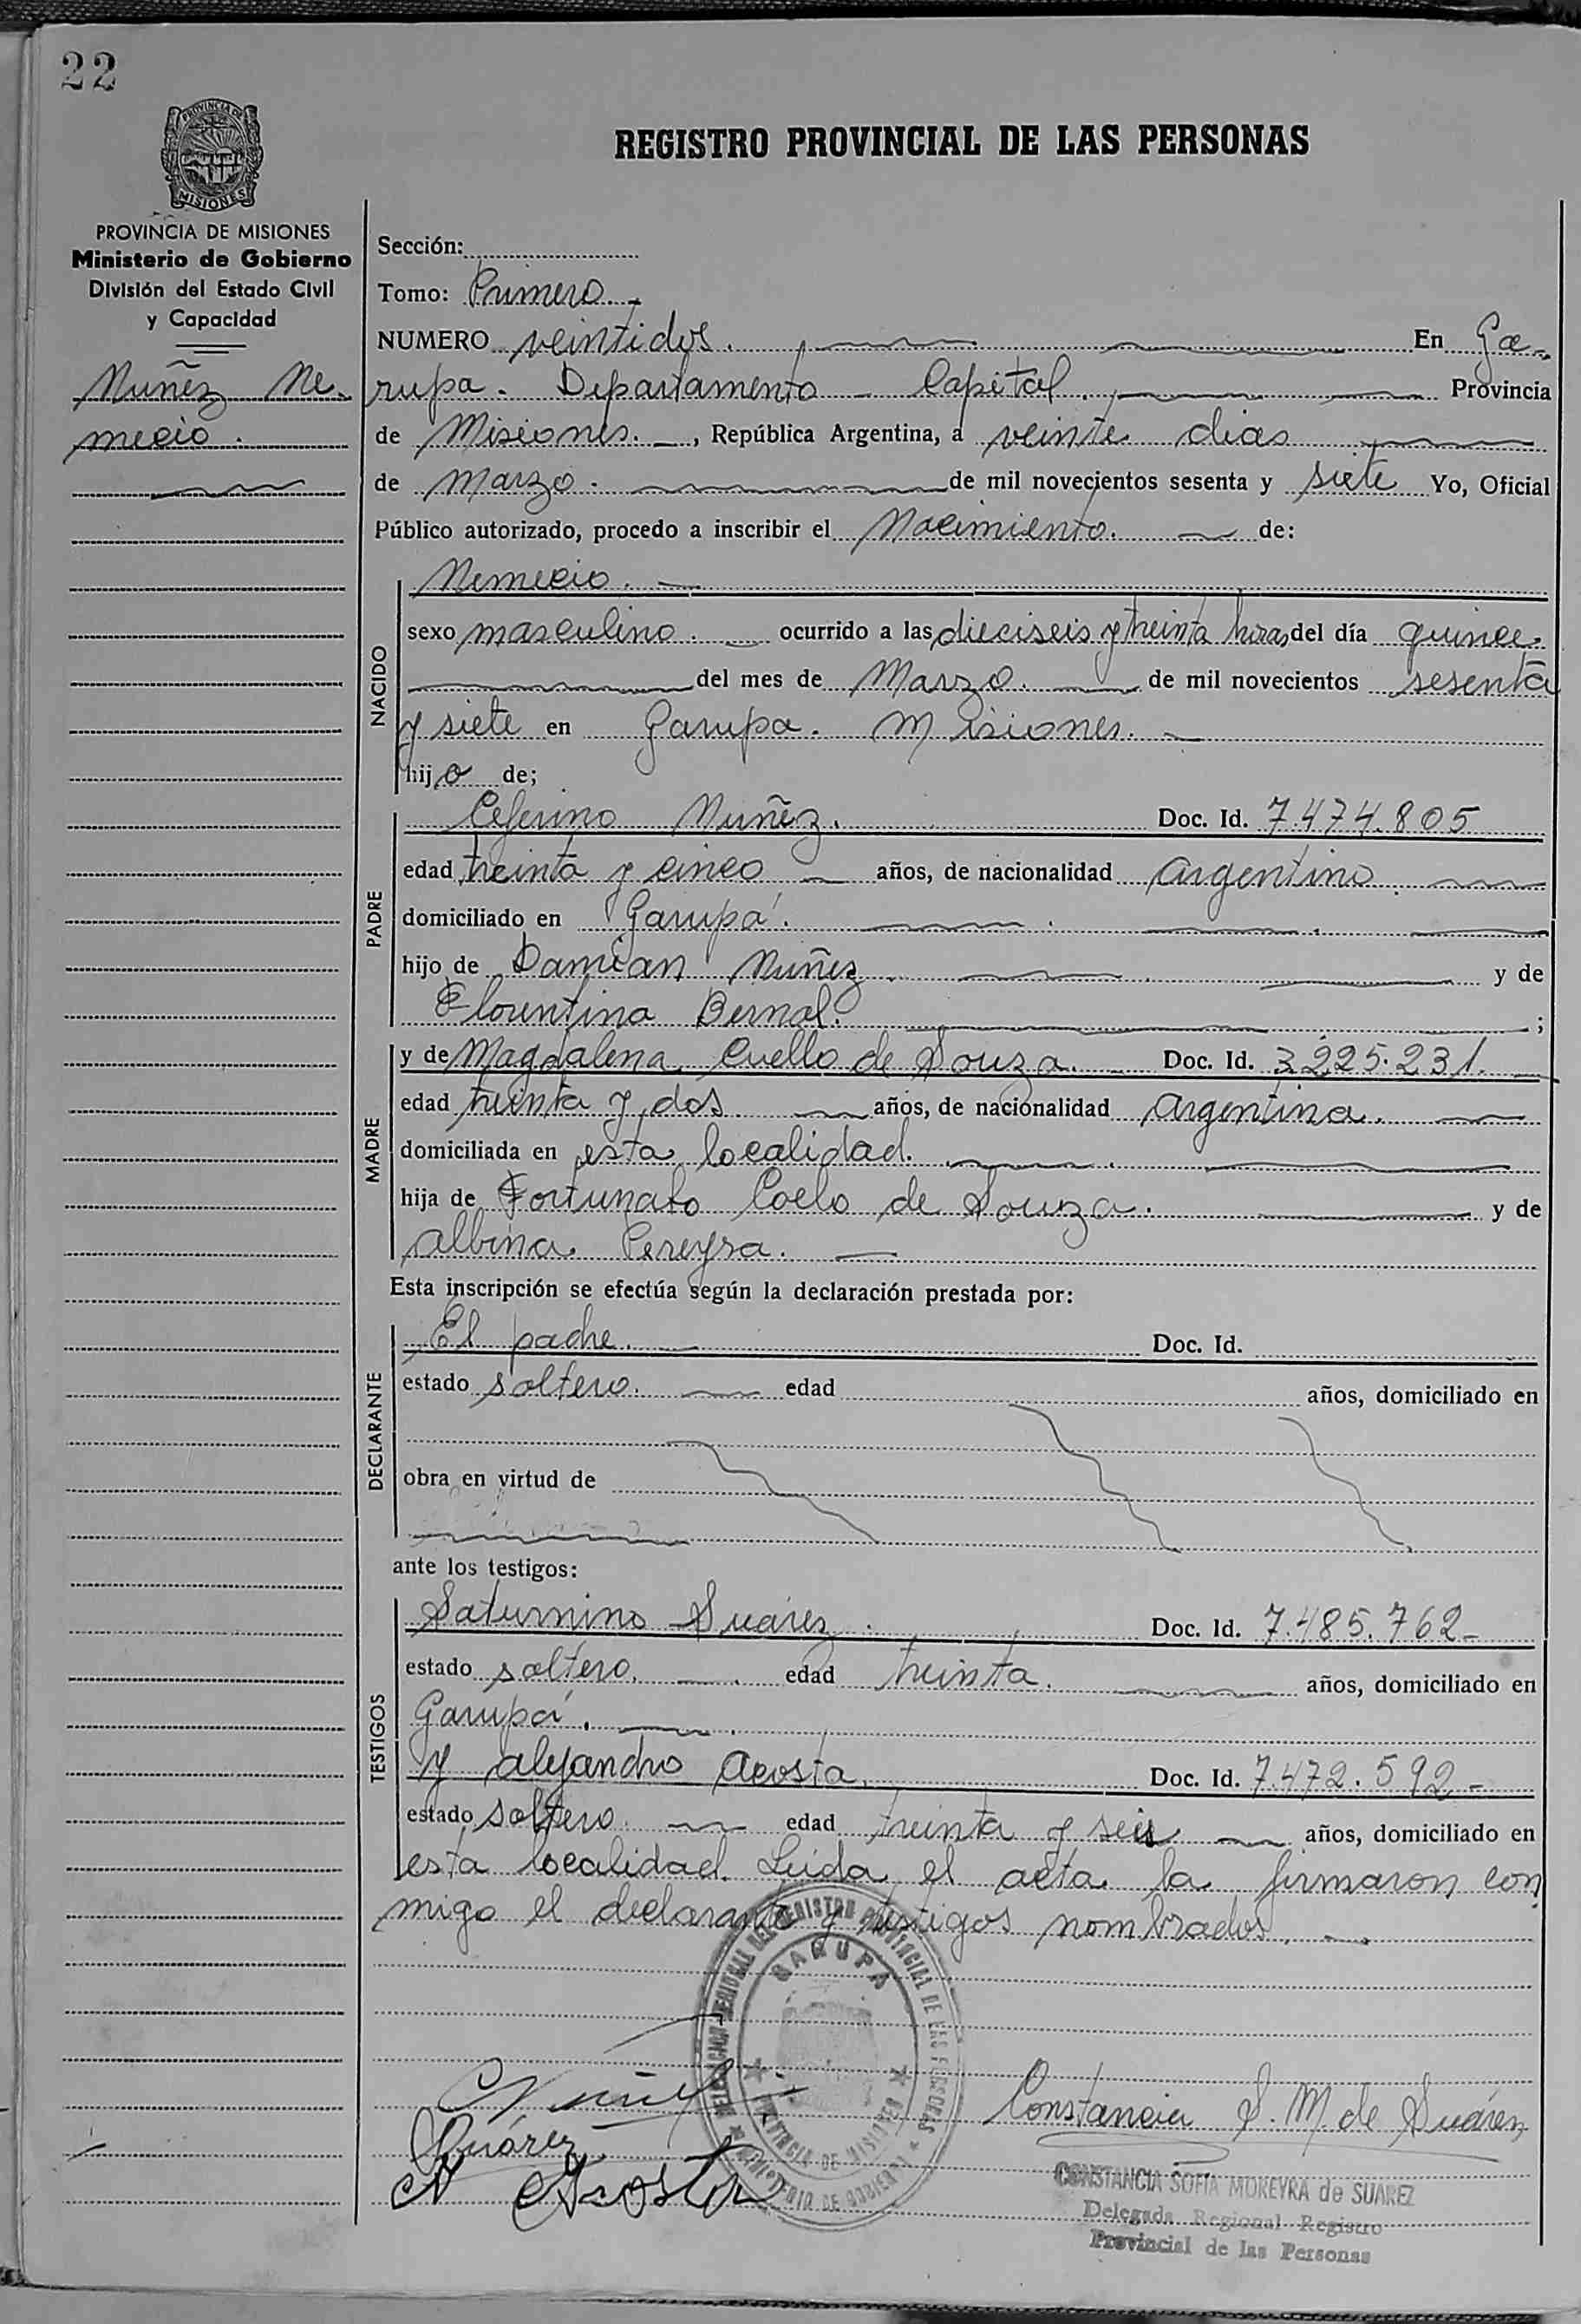 22
PROVINCIA DE
MISIONES
REGISTRO PROVINCIAL DE LAS PERSONAS
PROVINCIA DE MISIONES
Ministerio de Gobierno
División del Estado Civil
y Capacidad
Nuñez Ne-
mecio.
Sección:
Tomo: Primero.
NUMERO veintidos. En Ga-
rupa. Departamento Capital. Provincia
de Misiones. , República Argentina, a veinte dias
de Marzo. de mil novecientos sesenta y siete Yo, Oficial
Público autorizado, procedo a inscribir el Nacimiento. de:
NACIDO
Nemecio.
sexo masculino. ocurrido a las dieciseis y treinta horas del día quince.
del mes de Marzo. de mil novecientos sesenta
y siete en Garupa. Misiones.
hijo de;
PADRE
Ceferino Nuñez. Doc. Id. 7.474.805
edad treinta y cinco años, de nacionalidad argentino
domiciliado en Garupá.
hijo de Damian Nuñez. y de
Florentina Bernal. ;
MADRE
y de Magdalena Cuello de Souza. Doc. Id. 3.225.231.
edad treinta y dos años, de nacionalidad argentina.
domiciliada en esta localidad.
hija de Fortunato Coelo de Souza. y de
albina Pereyra.
Esta inscripción se efectúa según la declaración prestada por:
DECLARANTE
El padre. Doc. Id.
estado soltero. edad años, domiciliado en
obra en virtud de
ante los testigos:
TESTIGOS
Saturnino Suárez. Doc. Id. 7.485.762-
estado soltero. edad treinta. años, domiciliado en
Garupá.
y alejandro acosta. Doc. Id. 7.472.592-
estado soltero. edad treinta y seis años, domiciliado en
esta localidad. Leida el acta la firmaron con
migo el declarante y testigos nombrados.
DELEGACION REGIONAL DEL REGISTRO PROVINCIAL DE LAS PERSONAS
GARUPA
PROVINCIA DE MISIONES
MINISTERIO DE GOBIERNO
Nuñez
Suárez
A Acosta
Constancia S. M. de Suárez
CONSTANCIA SOFIA MOREYRA de SUAREZ
Delegada Regional Registro
Provincial de las Personas